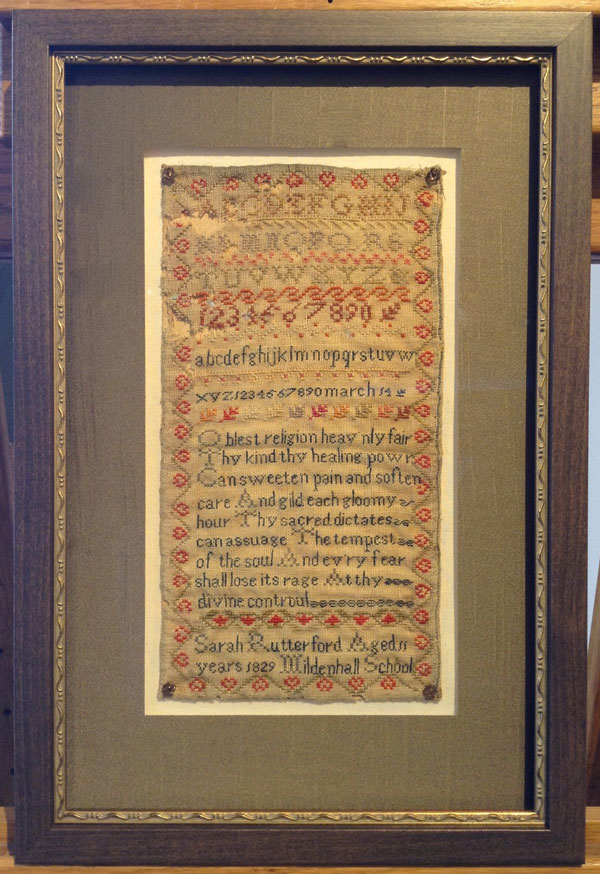 ABCDEFGHIJ
KLMNOPQRS
TUVWXYZ&
1234567890
abcdefghijklmnopqrstuvw
xyz1234567890march14
O blest religion heav'nly fair
Thy kind thy healing powr
Can sweeten pain and soften
care And gild each gloomy
hour Thy sacred dictates
can assuage The tempest
of the soul And ev'ry fear
shall lose its rage At thy
divine controul
Sarah Rutterford Aged 11
years 1829 Mildenhall School